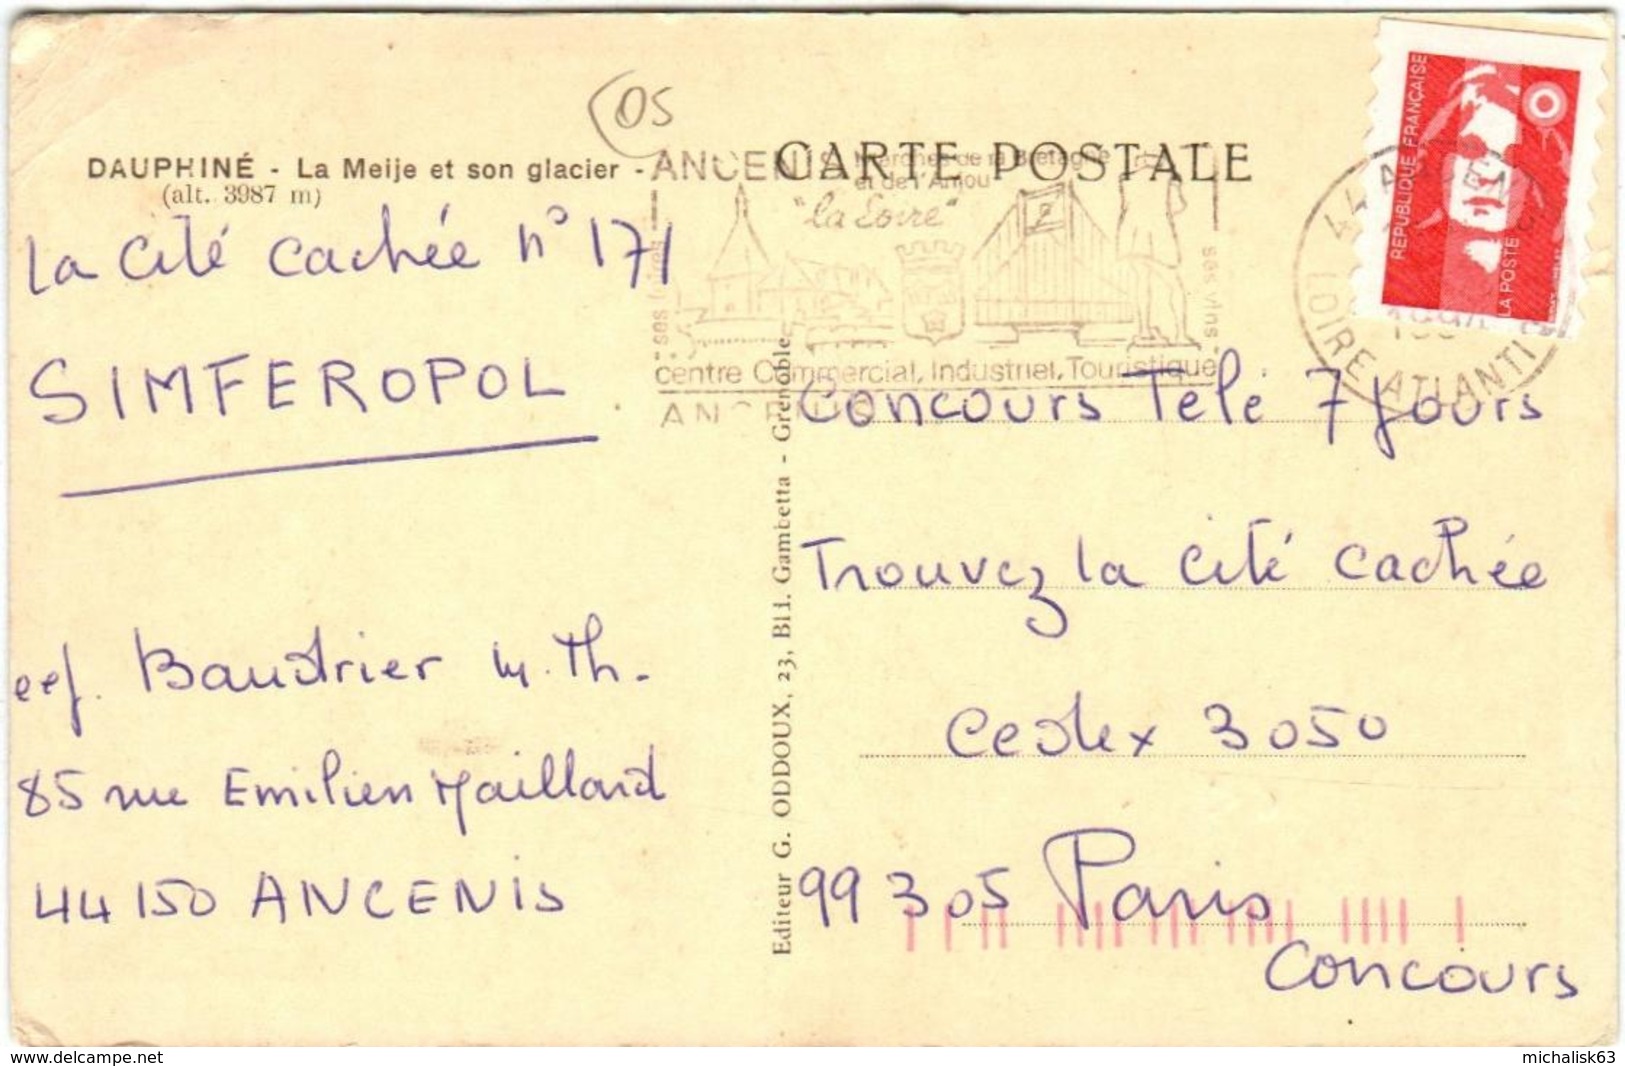 (05
DAUPHINÉ - La Meije et son glacier -
(alt. 3987 m)
CARTE POSTALE
ANCENIS Marches de la Bretagne
et de l'Anjou
"la Loire"
ses vins
centre Commercial, Industriel, Touristique
44 ANCENIS
LOIRE ATLANTI
REPUBLIQUE FRANÇAISE
LA POSTE
La Cité cachée n° 171
SIMFEROPOL
eef. Baudrier M. Th.
85 rue Emilien Maillard
44 150 ANCENIS
Editeur G. ODDOUX, 23, Bd. Gambetta - Grenoble
Concours Télé 7 Jours
Trouvez la cité cachée
Cedex 3050
99 305 Paris
Concours
www.delcampe.net
michalisk63